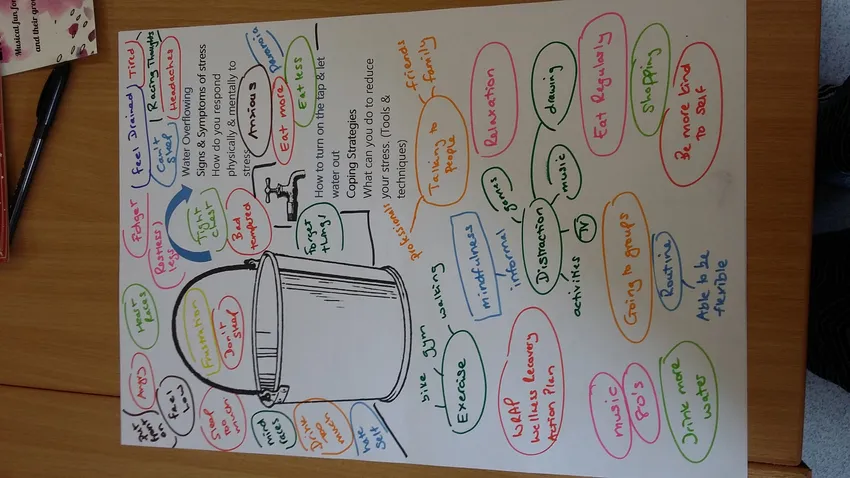 Musical fun for
and their grow
Tired
Racing Thoughts
Headaches
Feel Drained
Can't
sleep
Fidget
Restless
legs
Heart
races
Angry
Put
front
on
Feel
Low
Water Overflowing
Signs & Symptoms of stress
How do you respond
physically & mentally to
stress
Anxious
Paranoia
Eat less
Eat more
Tight
chest
Bad
tempered
Forget
things
Frustration
Don't
sleep
Sleep
too
much
mind
races
Drink
too
much
hate
self
How to turn on the tap & let
water out
Coping Strategies
What can you do to reduce
your stress. (Tools &
techniques)
friends
family
Talking to
People
professionals
Relaxation
drawing
music
games
Distraction
informal
TV
activities
mindfulness
walking
gym
bike
Exercise
Eat Regularly
Shopping
Be more kind
to self
Going to groups
Routine
Able to be
flexible
WRAP
Wellness Recovery
Action Plan
music
80's
Drink more
water